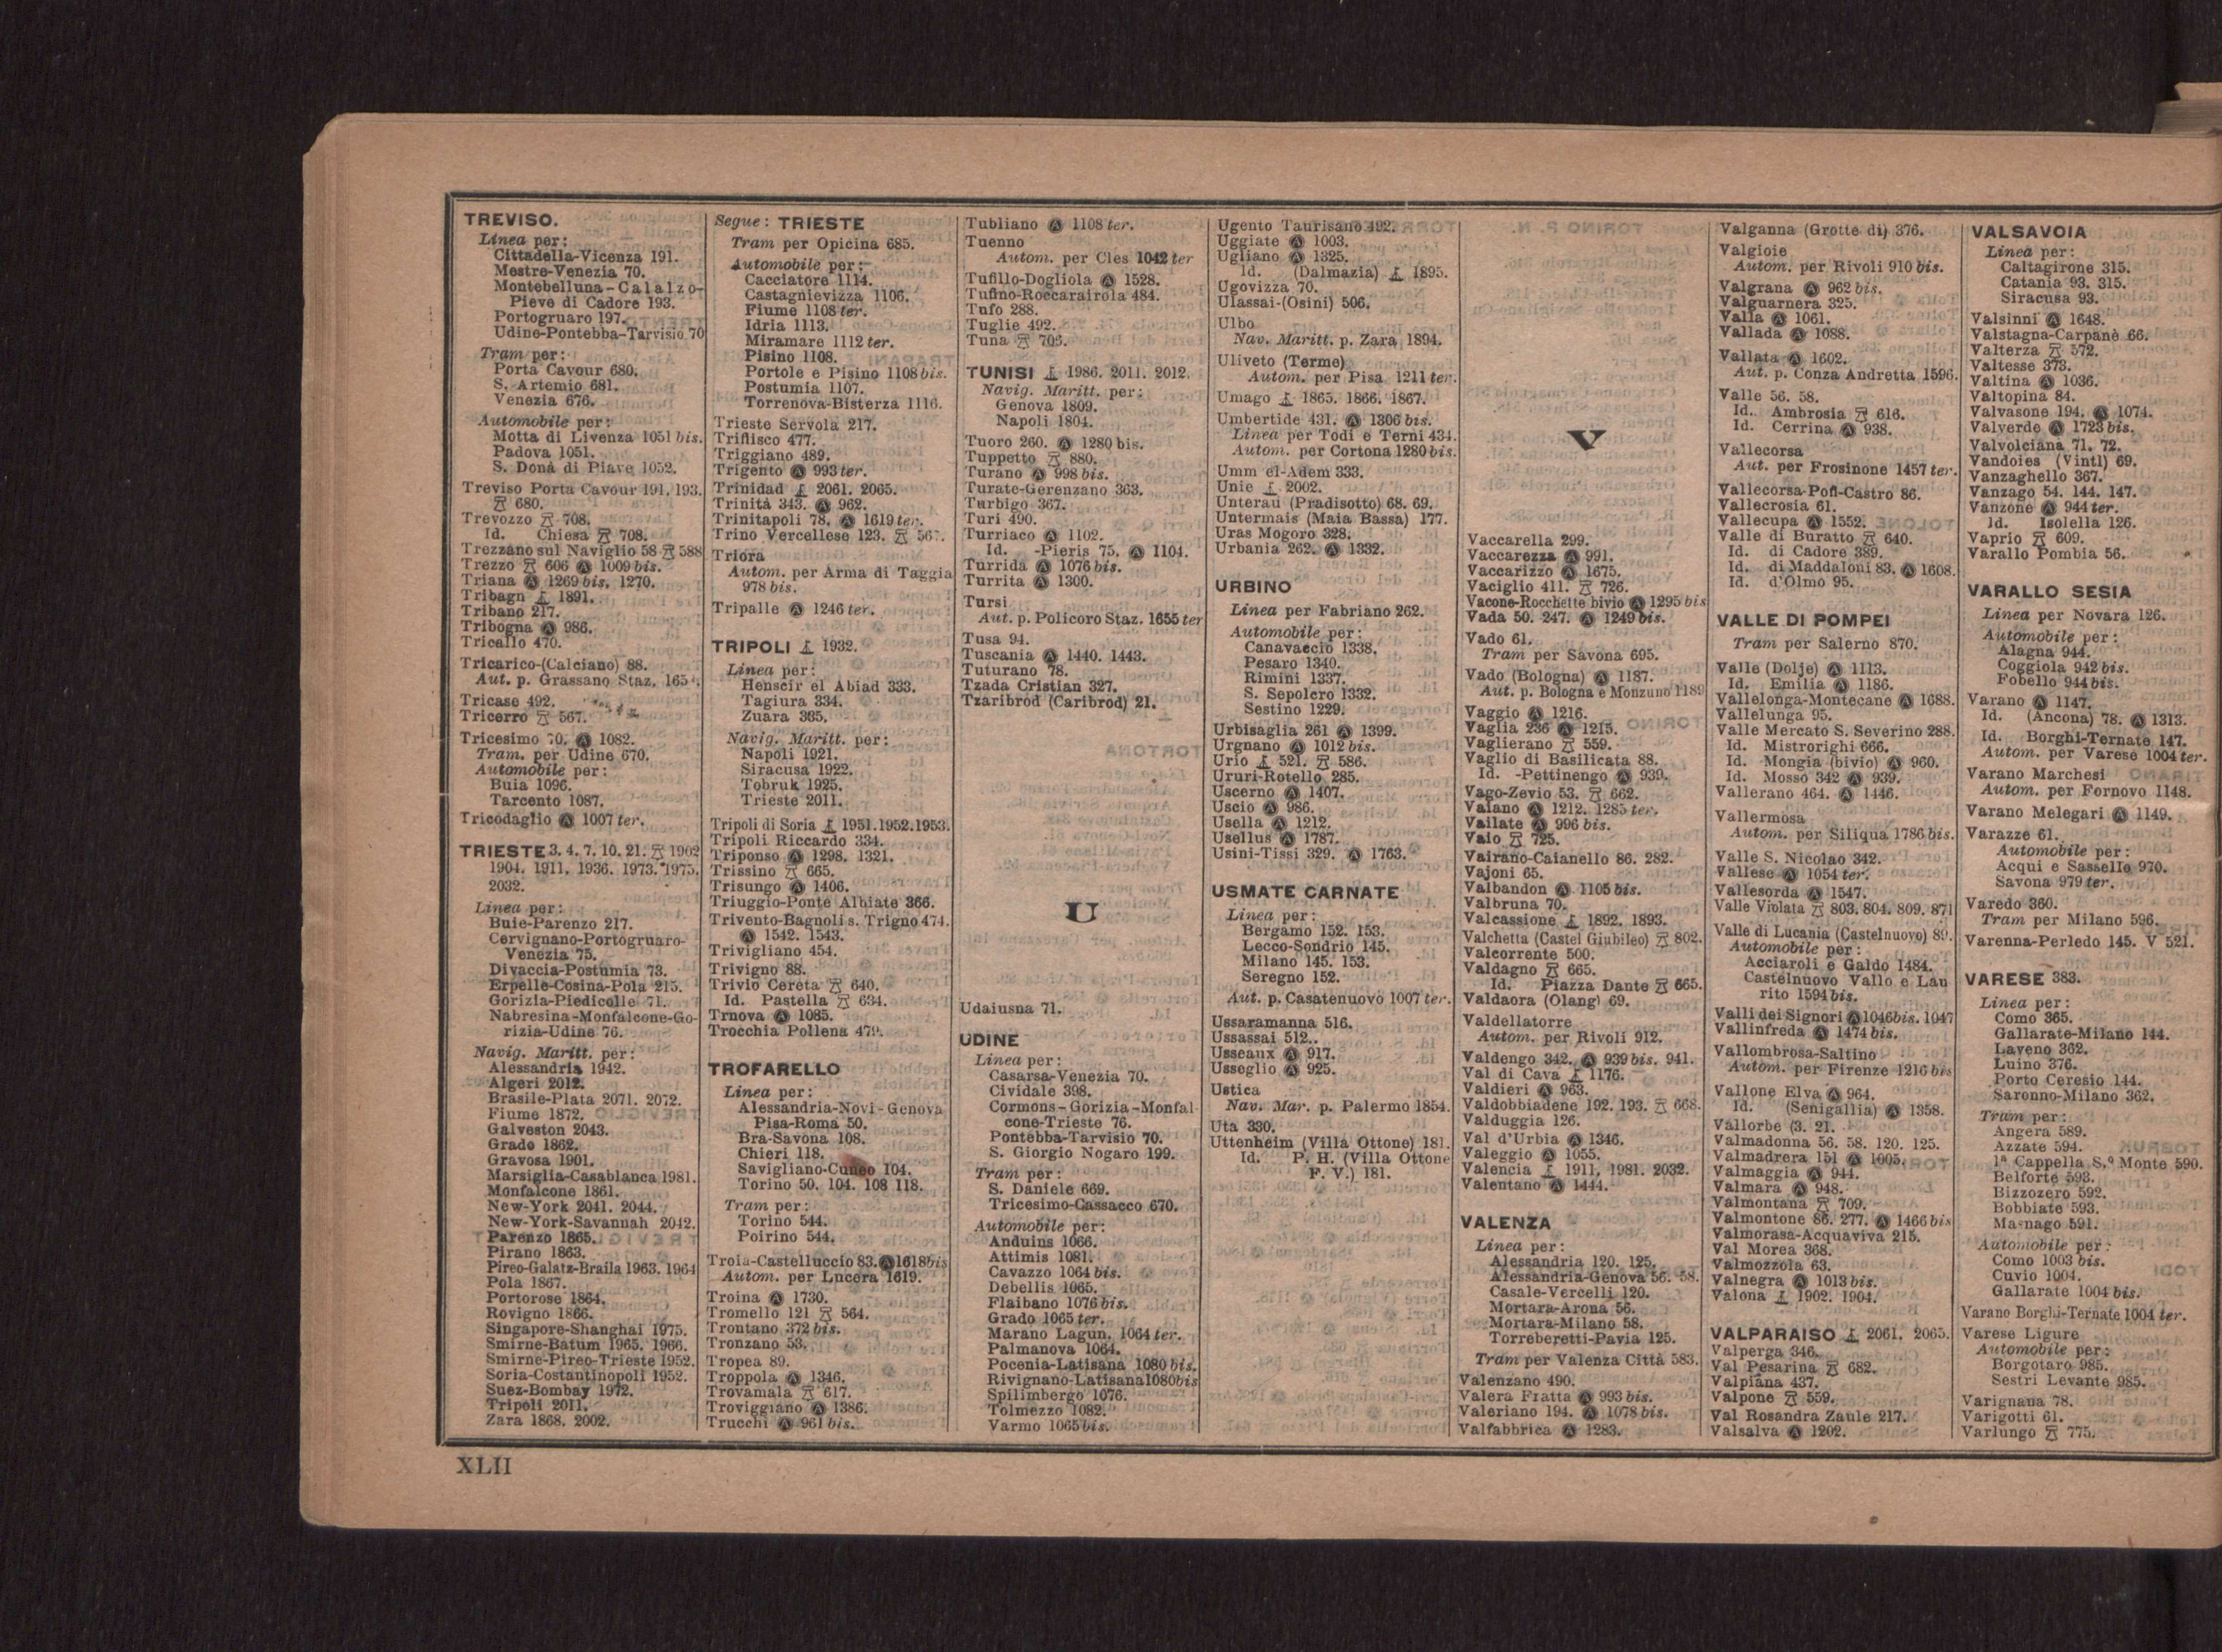 TREVISO.
Linea per:
Cittadella-Vicenza 191.
Mestre-Venezia 70.
Montebelluna-Calalzo-
Pieve di Cadore 193.
Portogruaro 197.
Udine-Pontebba-Tarvisio 70
Tram per:
Porta Cavour 680.
S. Artemio 681.
Venezia 676.
Automobile per:
Motta di Livenza 1051 bis.
Padova 1051.
S. Donà di Piave 1052.
Treviso Porta Cavour 191. 193.
680.
Trevozzo 708.
Id. Chiesa 708.
Trezzano sul Naviglio 58 588
Trezzo 606 Ⓐ 1009 bis.
Triana Ⓐ 1269 bis. 1270.
Tribagn 1891.
Tribano 217.
Tribogna Ⓐ 986.
Tricallo 470.
Tricarico-(Calciano) 88.
Aut. p. Grassano Staz.
Tricase 492.
Tricerro 567.
Tricesimo 70. Ⓐ 1082.
Tram. per Udine 670.
Automobile per:
Buia 1096.
Tarcento 1087.
Tricodaglio Ⓐ 1007 ter.
TRIESTE 3. 4. 7. 10. 21. 1902
1904. 1911. 1936. 1973. 1975.
2032.
Linea per:
Buie-Parenzo 217.
Cervignano-Portogruaro-
Venezia 75.
Divaccia-Postumia 73.
Erpelle-Cosina-Pola 215.
Gorizia-Piedicolle 71.
Nabresina-Monfalcone-Go-
rizia-Udine 76.
Navig. Maritt. per:
Alessandria 1942.
Algeri 2012.
Brasile-Plata 2071. 2072.
Fiume 1872.
Galveston 2043.
Grado 1862.
Gravosa 1901.
Marsiglia-Casablanca 1981.
Monfalcone 1861.
New-York 2041. 2044.
New-York-Savannah 2042.
Parenzo 1865.
Pirano 1863.
Pireo-Galatz-Braila 1963. 1964
Pola 1867.
Portorose 1864.
Rovigno 1866.
Singapore-Shanghai 1975.
Smirne-Batum 1965. 1966.
Smirne-Pireo-Trieste 1952.
Soria-Costantinopoli 1952.
Suez-Bombay 1972.
Tripoli 2011.
Zara 1868. 2002.
Segue: TRIESTE
Tram per Opicina 685.
Automobile per:
Cacciatore 1114.
Castagnievizza 1106.
Fiume 1108 ter.
Idria 1113.
Miramare 1112 ter.
Pisino 1108.
Portole e Pisino 1108 bis.
Postumia 1107.
Torrenova-Bisterza 1116.
Trieste Servola 217.
Triflisco 477.
Triggiano 489.
Trigento Ⓐ 993 ter.
Trinidad 2061. 2065.
Trinità 343. Ⓐ 962.
Trinitapoli 78. Ⓐ 1619 ter.
Trino Vercellese 123. 567.
Triora
Autom. per Arma di Taggia
978 bis.
Tripalle Ⓐ 1246 ter.
TRIPOLI 1932.
Linea per:
Henscir el Abiad 333.
Tagiura 334.
Zuara 335.
Navig. Maritt. per:
Napoli 1921.
Siracusa 1922.
Tobruk 1925.
Trieste 2011.
Tripoli di Soria 1951.1952.1953.
Tripoli Riccardo 334.
Triponso Ⓐ 1298. 1321.
Trissino 665.
Trisungo Ⓐ 1406.
Triuggio-Ponte Albiate 366.
Trivento-Bagnoli s. Trigno 474.
Ⓐ 1542. 1543.
Trivigliano 454.
Trivigno 88.
Trivio Cereta 640.
Id. Pastella 634.
Trnova Ⓐ 1085.
Trocchia Pollena
TROFARELLO
Linea per:
Alessandria-Novi-Genova
Pisa-Roma 50.
Bra-Savona 108.
Chieri 118.
Savigliano-Cuneo 104.
Torino 50. 104. 108 118.
Tram per:
Torino 544.
Poirino 544.
Troia-Castelluccio 83. Ⓐ 1618 bis
Autom. per Lucera 1619.
Troina Ⓐ 1730.
Tromello 121 564.
Trontano 372 bis.
Tronzano 53.
Tropea 89.
Troppola Ⓐ 1346.
Trovamala 617.
Troviggiano Ⓐ 1386.
Trucchi Ⓐ 961 bis.
Tubliano Ⓐ 1108 ter.
Tuenno
Autom. per Cles 1042 ter
Tufillo-Dogliola Ⓐ 1528.
Tufino-Roccarairola 484.
Tufo 288.
Tuglie 492.
Tuna 705.
TUNISI 1986. 2011. 2012.
Navig. Maritt. per:
Genova 1809.
Napoli 1804.
Tuoro 260. Ⓐ 1280 bis.
Tuppetto 880.
Turano Ⓐ 998 bis.
Turate-Gerenzano 363.
Turbigo 367.
Turi 490.
Turriaco Ⓐ 1102.
Id. -Pieris 75. Ⓐ 1104.
Turrida Ⓐ 1076 bis.
Turrita Ⓐ 1300.
Tursi
Aut. p. Policoro Staz. 1655 ter
Tusa 94.
Tuscania Ⓐ 1440. 1443.
Tuturano 78.
Tzada Cristian 327.
Tzaribrod (Caribrod) 21.
U
Udaiusna 71.
UDINE
Linea per:
Casarsa-Venezia 70.
Cividale 398.
Cormons-Gorizia-Monfal
cone-Trieste 76.
Pontebba-Tarvisio 70.
S. Giorgio Nogaro 199.
Tram per:
S. Daniele 669.
Tricesimo-Cassacco 670.
Automobile per:
Anduins 1066.
Attimis 1081.
Cavazzo 1064 bis.
Debellis 1065.
Flaibano 1076 bis.
Grado 1065 ter.
Marano Lagun. 1064 ter.
Palmanova 1064.
Pocenia-Latisana 1080 bis.
Rivignano-Latisana 1080 bis
Spilimbergo 1076.
Tolmezzo 1082.
Varmo 1065 bis.
Ugento Taurisano 492.
Uggiate Ⓐ 1003.
Ugliano Ⓐ 1325.
Id. (Dalmazia) 1895.
Ugovizza 70.
Ulassai-(Osini) 506.
Ulbo
Nav. Maritt. p. Zara 1894.
Uliveto (Terme)
Autom. per Pisa 1211 ter.
Umago 1865. 1866. 1867.
Umbertide 431. Ⓐ 1306 bis.
Linea per Todi e Terni 434.
Autom. per Cortona 1280 bis.
Umm el-Adem 333.
Unie 2002.
Unterau (Pradisotto) 68. 69.
Untermais (Maia Bassa) 177.
Uras Mogoro 328.
Urbania 262. Ⓐ 1332.
URBINO
Linea per Fabriano 262.
Automobile per:
Canavaccio 1338.
Pesaro 1340.
Rimini 1337.
S. Sepolcro 1332.
Sestino 1229.
Urbisaglia 261 Ⓐ 1399.
Urgnano Ⓐ 1012 bis.
Urio 521. 586.
Ururi-Rotello 285.
Uscerno Ⓐ 1407.
Uscio Ⓐ 986.
Usella Ⓐ 1212.
Usellus Ⓐ 1787.
Usini-Tissi 329. Ⓐ 1763.
USMATE CARNATE
Linea per:
Bergamo 152. 153.
Lecco-Sondrio 145.
Milano 145. 153.
Seregno 152.
Aut. p. Casatenuovo 1007 ter.
Ussaramanna 516.
Ussassai 512..
Usseaux Ⓐ 917.
Usseglio Ⓐ 925.
Ustica
Nav. Mar. p. Palermo 1854.
Uta 330.
Uttenheim (Villa Ottone) 181.
Id. P. H. (Villa Ottone
F. V.) 181.
V
Vaccarella 299.
Vaccarezza Ⓐ 991.
Vaccarizzo Ⓐ 1675.
Vaciglio 411. 726.
Vacone-Rocchette bivio Ⓐ 1295 bis
Vada 50. 247. Ⓐ 1249 bis.
Vado 61.
Tram per Savona 695.
Vado (Bologna) Ⓐ 1187.
Aut. p. Bologna e Monzuno 1189
Vaggio Ⓐ 1216.
Vaglia 236 Ⓐ 1215.
Vaglierano 559.
Vaglio di Basilicata 88.
Id. -Pettinengo Ⓐ 939.
Vago-Zevio 53. 662.
Vaiano Ⓐ 1212. 1285 ter.
Vailate Ⓐ 996 bis.
Vaio 725.
Vairano-Caianello 86. 282.
Vajoni 65.
Valbandon Ⓐ 1105 bis.
Valbruna 70.
Valcassione 1892. 1893.
Valchetta (Castel Giubileo) 802.
Valcorrente 500.
Valdagno 665.
Id. Piazza Dante 665.
Valdaora (Olang) 69.
Valdellatorre
Autom. per Rivoli 912.
Valdengo 342. Ⓐ 939 bis. 941.
Val di Cava 1176.
Valdieri Ⓐ 963.
Valdobbiadene 192. 193. 668.
Valduggia 126.
Val d'Urbia Ⓐ 1346.
Valeggio Ⓐ 1055.
Valencia 1911. 1981. 2032.
Valentano Ⓐ 1444.
VALENZA
Linea per:
Alessandria 120. 125.
Alessandria-Genova 56. 58.
Casale-Vercelli 120.
Mortara-Arona 56.
Mortara-Milano 58.
Torreberetti-Pavia 125.
Tram per Valenza Città 583.
Valenzano 490.
Valera Fratta Ⓐ 993 bis.
Valeriano 194. Ⓐ 1078 bis.
Valfabbrica Ⓐ 1283.
Valganna (Grotte di) 376.
Valgioie
Autom. per Rivoli 910 bis.
Valgrana Ⓐ 962 bis.
Valguarnera 325.
Valla Ⓐ 1061.
Vallada Ⓐ 1088.
Vallata Ⓐ 1602.
Aut. p. Conza Andretta 1596.
Valle 56. 58.
Id. Ambrosia 616.
Id. Cerrina Ⓐ 938.
Vallecorsa
Aut. per Frosinone 1457 ter.
Vallecorsa-Pofi-Castro 86.
Vallecrosia 61.
Vallecupa Ⓐ 1552.
Valle di Buratto 640.
Id. di Cadore 389.
Id. di Maddaloni 83. Ⓐ 1608.
Id. d'Olmo 95.
VALLE DI POMPEI
Tram per Salerno 870.
Valle (Dolje) Ⓐ 1113.
Id. Emilia Ⓐ 1186.
Vallelonga-Montecane Ⓐ 1688.
Vallelunga 95.
Valle Mercato S. Severino 288.
Id. Mistrorighi 666.
Id. Mongia (bivio) Ⓐ 960.
Id. Mosso 342 Ⓐ 939.
Vallerano 464. Ⓐ 1446.
Vallermosa
Autom. per Siliqua 1786 bis.
Valle S. Nicolao 342.
Vallese Ⓐ 1054 ter.
Vallesorda Ⓐ 1547.
Valle Violata 803. 804. 809. 871
Valle di Lucania (Castelnuovo) 89.
Automobile per:
Acciaroli e Galdo 1484.
Castelnuovo Vallo e Lau
rito 1594 bis.
Valli dei Signori Ⓐ 1046 bis. 1047
Vallinfreda Ⓐ 1474 bis.
Vallombrosa-Saltino
Autom. per Firenze 1216 bis
Vallone Elva Ⓐ 964.
Id. (Senigallia) Ⓐ 1358.
Vallorbe (3. 21.
Valmadonna 56. 58. 120. 125.
Valmadrera 151 Ⓐ 1005.
Valmaggia Ⓐ 944.
Valmara Ⓐ 948.
Valmontana 709.
Valmontone 86. 277. Ⓐ 1466 bis
Valmorasa-Acquaviva 215.
Val Morea 368.
Valmozzola 63.
Valnegra Ⓐ 1013 bis.
Valona 1902. 1904.
VALPARAISO 2061. 2065.
Valperga 346.
Val Pesarina 682.
Valpiana 437.
Valpone 559.
Val Rosandra Zaule 217.
Valsalva Ⓐ 1202.
VALSAVOIA
Linea per:
Caltagirone 315.
Catania 93. 315.
Siracusa 93.
Valsinni Ⓐ 1648.
Valstagna-Carpanè 66.
Valterza 572.
Valtesse 373.
Valtina Ⓐ 1036.
Valtopina 84.
Valvasone 194. Ⓐ 1074.
Valverde Ⓐ 1723 bis.
Valvolciana 71. 72.
Vandoies (Vintl) 69.
Vanzaghello 367.
Vanzago 54. 144. 147.
Vanzone Ⓐ 944 ter.
Id. Isolella 126.
Vaprio 609.
Varallo Pombia 56.
VARALLO SESIA
Linea per Novara 126.
Automobile per:
Alagna 944.
Coggiola 942 bis.
Fobello 944 bis.
Varano Ⓐ 1147.
Id. (Ancona) 78. Ⓐ 1313.
Id. Borghi-Ternate 147.
Autom. per Varese 1004 ter.
Varano Marchesi
Autom. per Fornovo 1148.
Varano Melegari Ⓐ 1149.
Varazze 61.
Automobile per:
Acqui e Sassello 970.
Savona 979 ter.
Varedo 360.
Tram per Milano 596.
Varenna-Perledo 145. V 521.
VARESE 383.
Linea per:
Como 365.
Gallarate-Milano 144.
Laveno 362.
Luino 376.
Porto Ceresio 144.
Saronno-Milano 362.
Tram per:
Angera 589.
Azzate 594.
1ª Cappella S.º Monte 590.
Belforte 593.
Bizzozero 592.
Bobbiate 593.
Masnago 591.
Automobile per:
Como 1003 bis.
Cuvio 1004.
Gallarate 1004 bis.
Varano Borghi-Ternate 1004 ter.
Varese Ligure
Automobile per:
Borgotaro 985.
Sestri Levante 985.
Varignana 78.
Varigotti 61.
Varlungo 775.
XLII